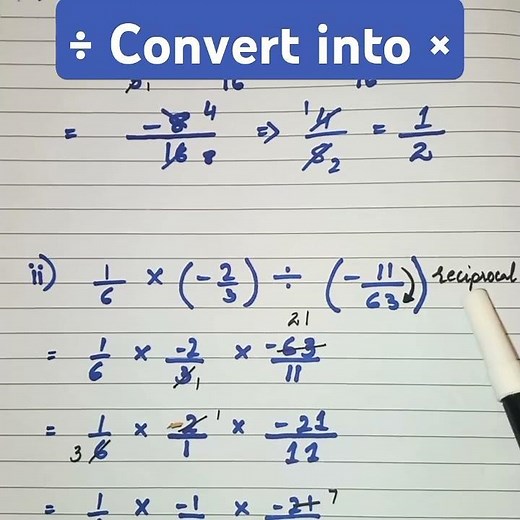 ÷ Convert into ×
= -8 4 / 16 8 ⇒ 1 4 / 8 2 = 1/2
ii) 1/6 × (-2/3) ÷ (-11/63) reciprocal
= 1/6 × -2/3 1 × 21 -63/11
= 1/3 6 × -2 1/1 × -21/11
= 1/ × -1 × -21 7